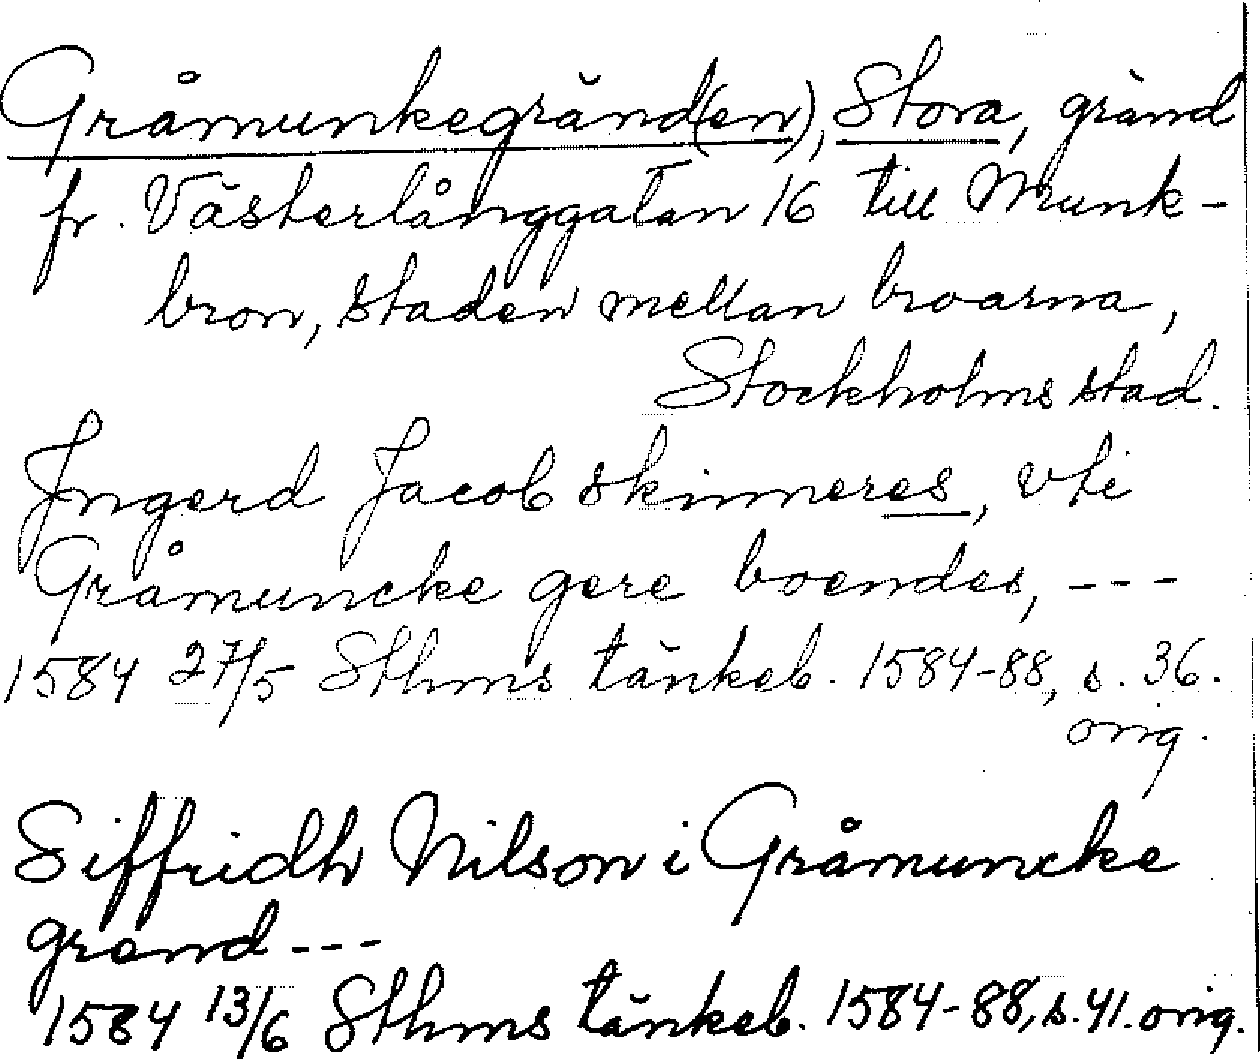 Gråmunkegränd(en), Stora, gränd
fr. Västerlånggatan 16 till Munk-
bron, staden mellan broarna,
Stockholms stad.
Jngerd Jacob skinneres, vti
Gråmuncke gere boendes, ---
1584 27/5 Sthms tänkeb. 1584-88, s. 36.
orig.
Siffridh Nilson i Gråmuncke
grend ---
1584 13/6 Sthms tänkeb. 1584-88, s. 41. orig.